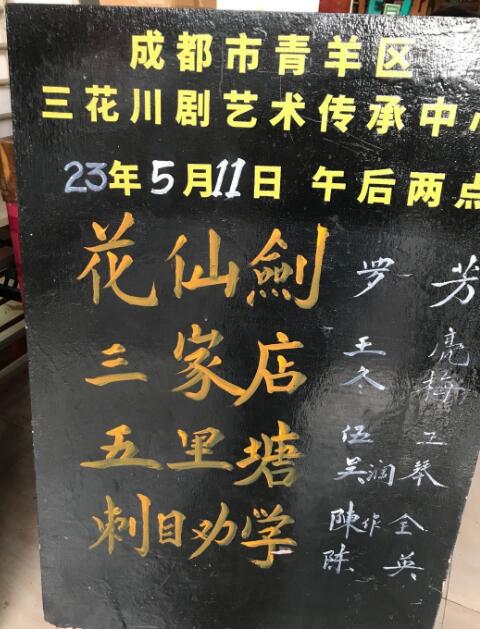 成都市青羊区
三花川剧艺术传承中心
23年5月11日 午后两点
花仙劍 罗芳
三家店 王亮
冬梅
五里塘 伍工
吴润琴
刺目劝学 陳作全
陈英